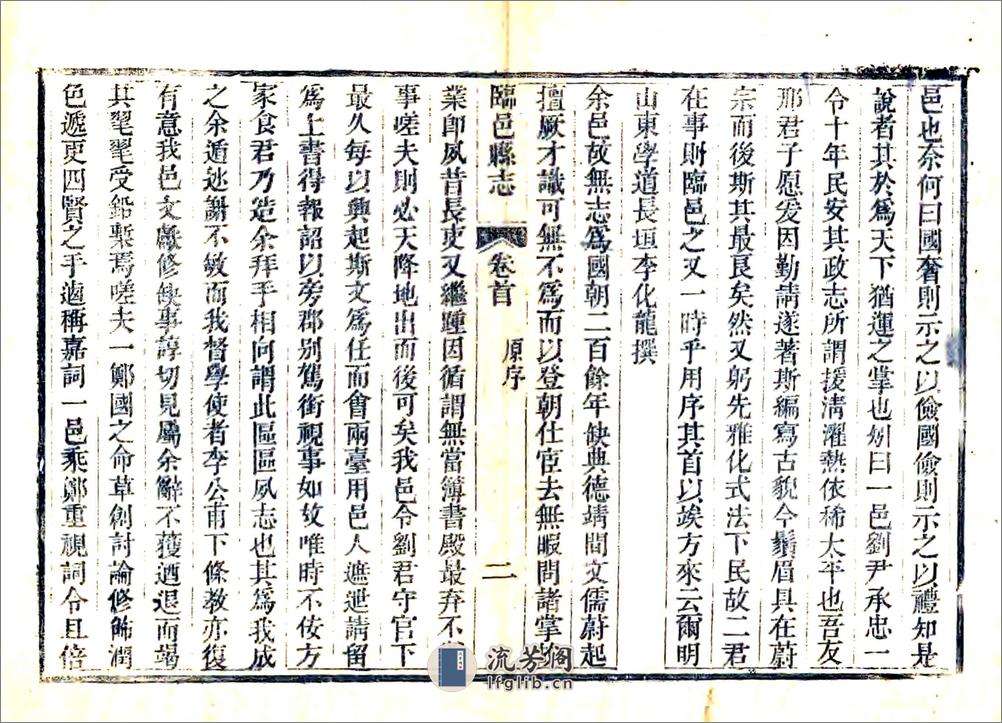 邑也奈何曰國奢則示之以儉國儉則示之以禮知是
說者其於爲天下猶運之掌也矧曰一邑劉尹承忠一
令十年民安其政志所謂援淸濯熱依稀太平也吾友
那君子愿爰因勤請遂著斯編寫古貌今鬚眉具在蔚
宗而後斯其最良矣然又躬先雅化式法下民故二君
在事則臨邑之又一時乎用序其首以竢方來云爾明
山東學道長垣李化龍撰
余邑故無志爲國朝二百餘年缺典德靖間文儒蔚起
擅厥才識可無不爲而以登朝仕宦去無暇問諸掌
臨邑縣志 卷首 原序 二
業卽夙昔長吏又繼踵因循謂無當簿書殿最弃不
事嗟夫則必天降地出而後可矣我邑令劉君守官下
最久每以興起斯文爲任而會兩臺用邑人遮泄請留
爲上書得報詔以旁郡别駕銜視事如故唯時不侫方
家食君乃造余拜手相向謂此區區夙志也其爲我成
之余遁逃謝不敏而我督學使者李公甫下條教亦復
有意我邑文獻修缺事諄切見屬余辭不獲迺退而竭
其毣毣受鉛槧焉嗟夫一鄭國之命草創討論修飾潤
色遞更四賢之手適稱嘉詞一邑乘鄭重視詞令且倍
流芳閣
lfglib.cn